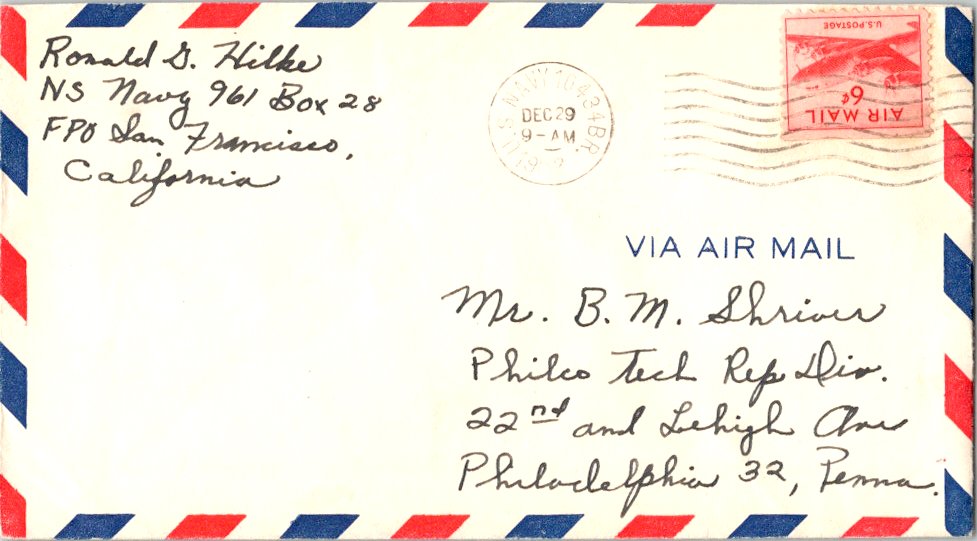 Ronald G. Hilke
NS Navy 961 Box 28
FPO San Francisco,
California
U.S. NAVY 10434 BR.
DEC 29
9 - AM
U.S. POSTAGE
6¢
AIR MAIL
VIA AIR MAIL
Mr. B. M. Shriver
Philco Tech Rep Div.
22nd and Lehigh Ave
Philadelphia 32, Penna.